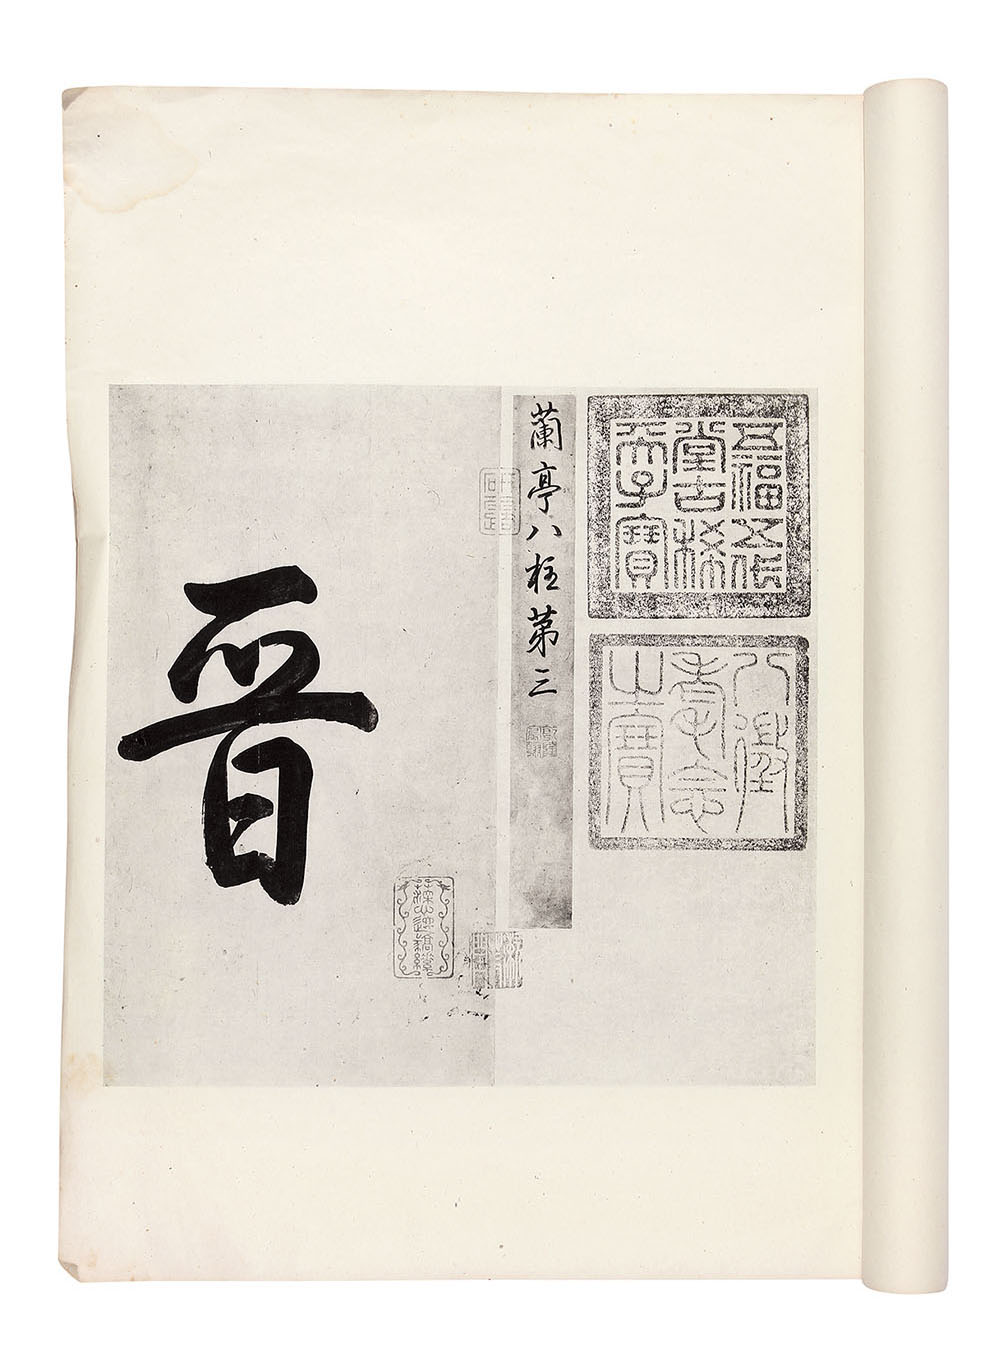 五福五代
堂古稀
天子寶
八徵
耄念
之寶
蘭亭八柱第三
晉